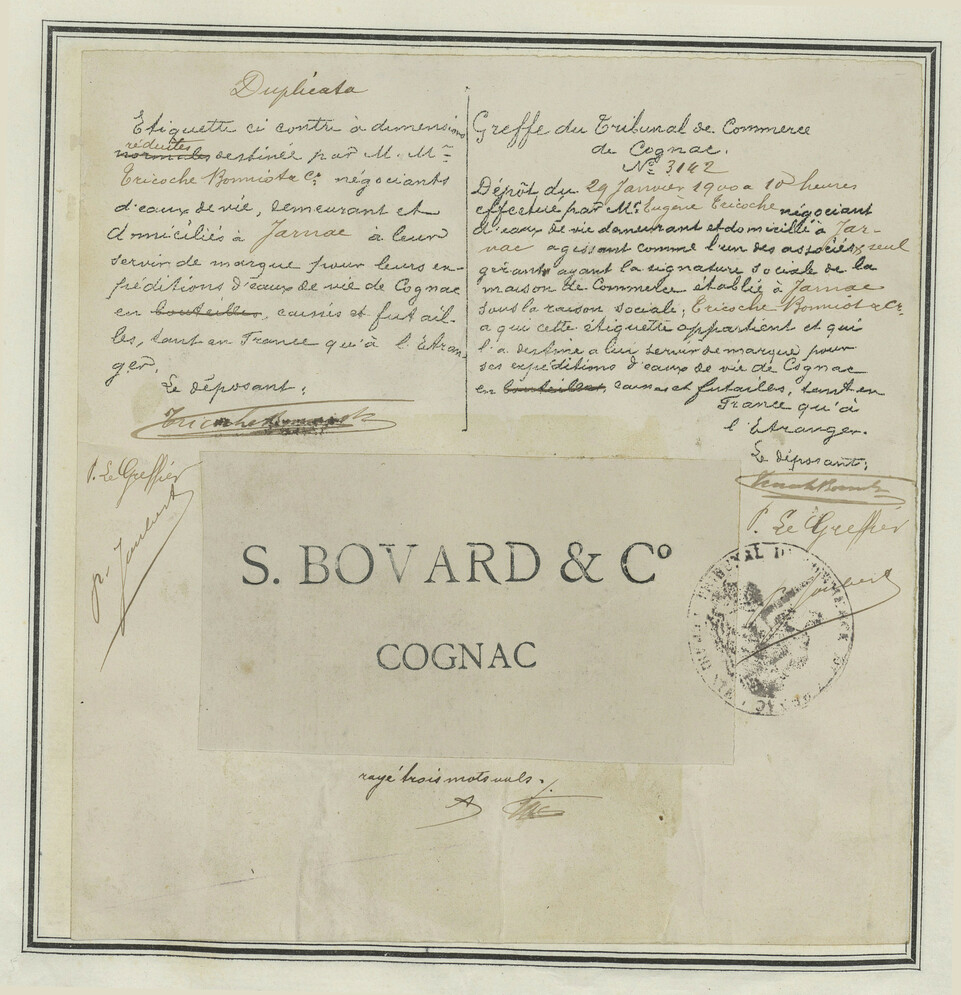 Duplicata
Etiquette ci contre à dimensions
réduites
normales destinée par M. Mrs
Tricoche Bonniot & Cie négociants
d'eaux de vie, demeurant et
domiciliés à Jarnac à leur
servir de marque pour leurs ex-
péditions d'eaux de vie de Cognac
en bouteilles, caisses et futail-
les, tant en France qu'à l'Etran-
ger.
Le déposant:
Tricoche Bonniot
P. Le Greffier
p. Joubert
Greffe du Tribunal de Commerce
de Cognac.
No 3142
Dépôt du 29 Janvier 1900 à 10 heures
effectué par Mr Eugène Tricoche négociant
d'eaux de vie demeurant et domicilié à Jar-
nac agissant comme l'un des associés, seul
gérant ayant la signature sociale de la
maison de Commerce établie à Jarnac
sous la raison sociale; Tricoche Bonniot & Cie
a qui cette étiquette appartient et qui
l'a destine a lui servir de marque pour
ses expéditions d'eaux de vie de Cognac
en bouteilles, caisses et futailles, tant en
France qu'à
l'Etranger.
Le déposant:
P. Le Greffier
p. Joubert
S. BOVARD & Co
COGNAC
TRIBUNAL DE COMMERCE
rayé trois mots nuls.